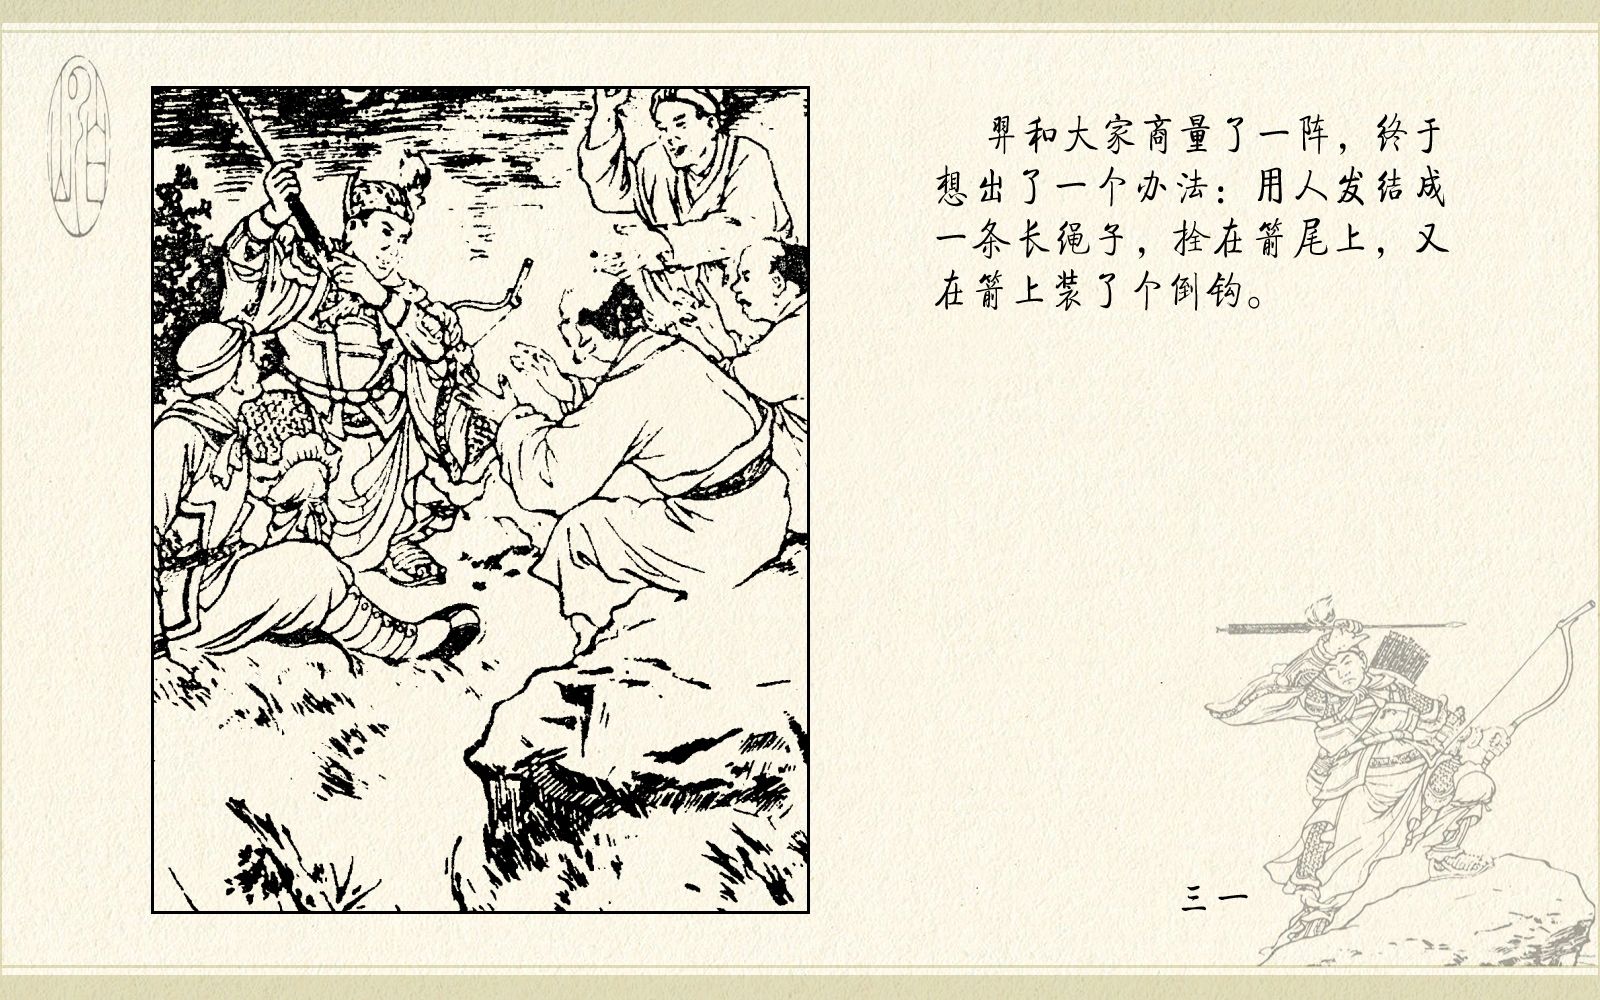 羿和大家商量了一阵，终于
想出了一个办法：用人发结成
一条长绳子，拴在箭尾上，又
在箭上装了个倒钩。
三一